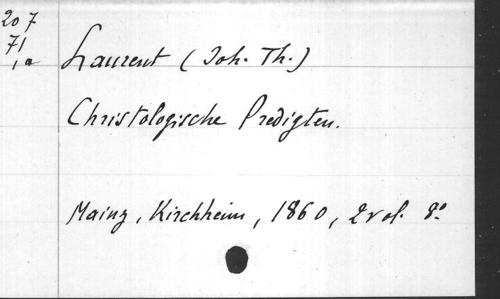 207
71
, a
Laurent (Joh. Th.)
Christologische Predigten.
Mainz, Kirchheim, 1860, 2 vol. 8º